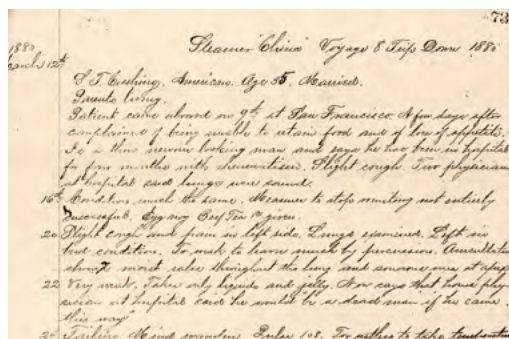 73
1880
March 12th
Steamer "China" Voyage 8 Trip Down 1880
S. T. Cushing. American. Age 55. Married.
Parents living.
Patient came aboard on 9th at San Francisco. A few days after
complained of being unable to retain food and of loss of appetite.
Is a thin nervous looking man and says he has been in hospital
for four months with rheumatism. Slight cough. Two physicians
at hospital said lungs were sound.
16th Condition much the same. Measures to stop vomiting not entirely
successful. Egg nog Beef Tea given.
20 Slight cough and pain in left side. Lungs examined. Left in
bad condition. Too weak to learn much by percussion. Auscultation
shows moist rales throughout the lung and sonorous ones at apex
22 Very weak. Takes only liquids and jelly. Now says that house phy-
sician at hospital said he would "be a dead man if he came
this way"
24 Failing. Mind wanders. Pulse 108. Too to take